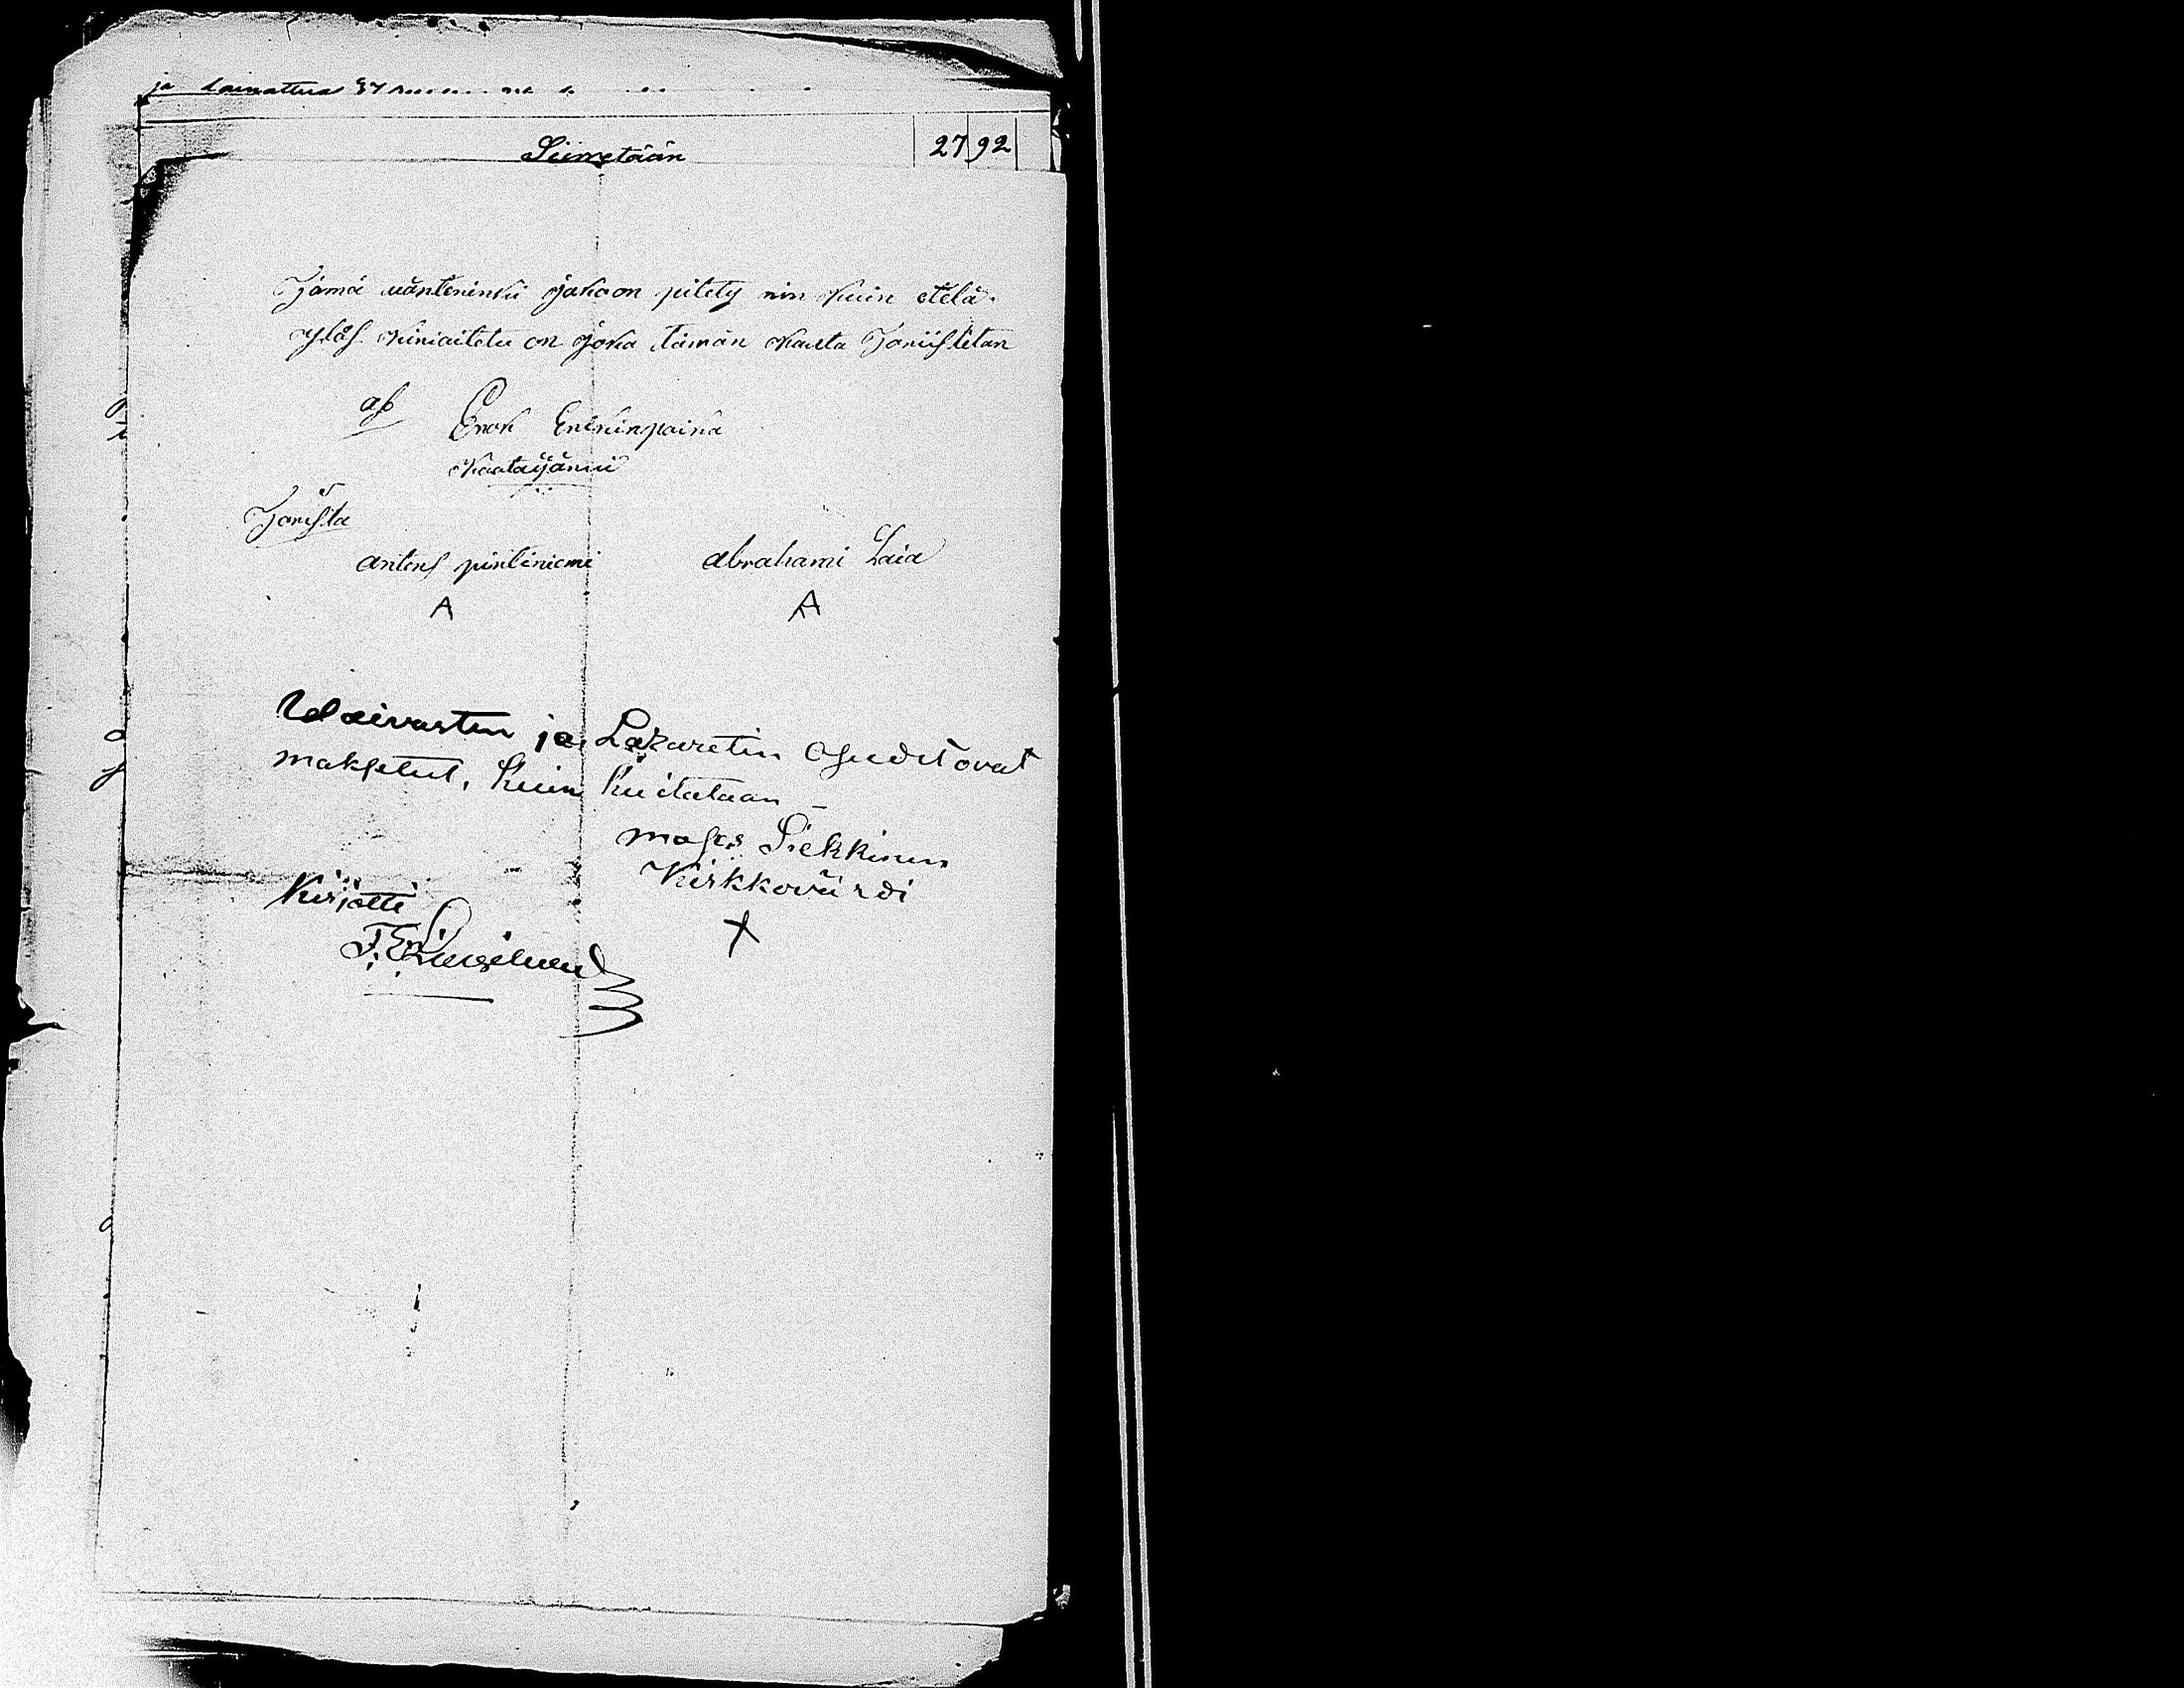 ja lainattua 57
Siirretään 27 92
Tämä uänteninki joka on pitety nin kuin etelä
yläs kiriaitetu on joka tämän kauta Toriistetan
as Enok Erkinpaika
Kaatajärvi
Torista
antens pintiniemi abrahami Laia
A A
Waivasten ja Lazaretin Osuudet ovat
maksetut, kuin kuitataan –
Moses Siekkinen
Kirkkovärdi
Kirjotti X